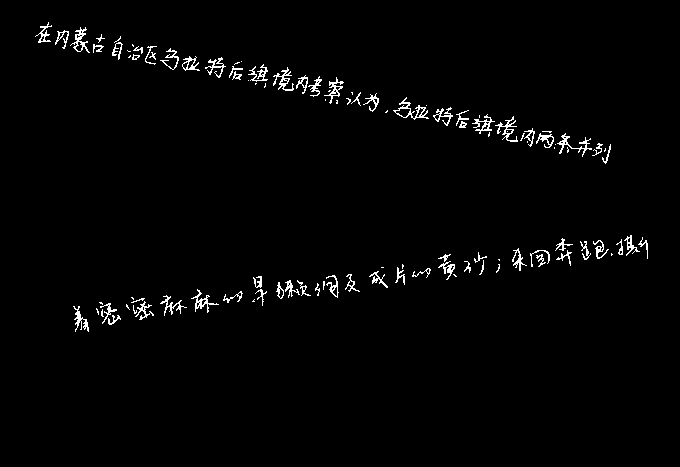 在内蒙古自治区乌拉特后旗境内考察认为,乌拉特后旗境内两条并列
着密密麻麻的旱獭洞及成片的黄沙;来回奔跑.撕